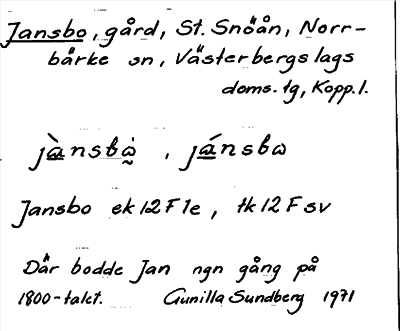 Jansbo, gård, St. Snöån, Norr-
bärke sn, Västerbergslags
doms. tg, Kopp. l.
jànsbò̤, jánsbω
Jansbo ek 12 F 1e, tk 12 F sv
Där bodde Jan ngn gång på
1800-talet. Gunilla Sundberg 1971